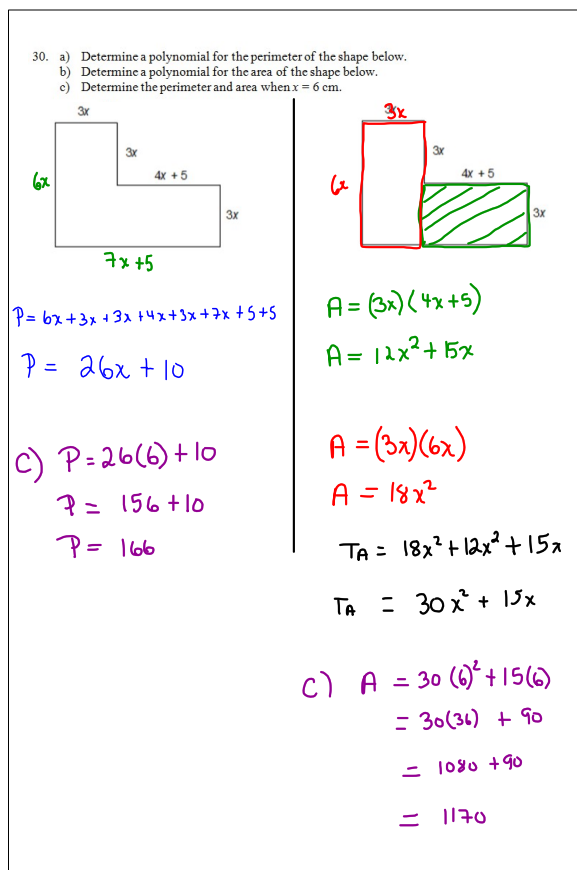 30. a) Determine a polynomial for the perimeter of the shape below.
b) Determine a polynomial for the area of the shape below.
c) Determine the perimeter and area when x = 6 cm.
3x
3x
4x + 5
6x
3x
7x+5
P= 6x+3x+3x+4x+3x+7x+5+5
P= 26x + 10
C) P=26(6)+10
P= 156+10
P= 166
3x
3x
4x + 5
6x
3x
A=(3x)(4x+5)
A= 12x²+15x
A=(3x)(6x)
A = 18x²
TA = 18x²+12x²+15x
TA = 30x² + 15x
C) A = 30(6)²+15(6)
= 30(36) + 90
= 1080 +90
= 1170